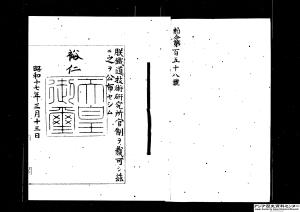 勅令第百五十八號
朕鐵道技術研究所官制ヲ裁可シ茲
ニ之ヲ公布セシム
裕仁
天皇
御璽
昭和十七年三月十三日
アジア歴史資料センター